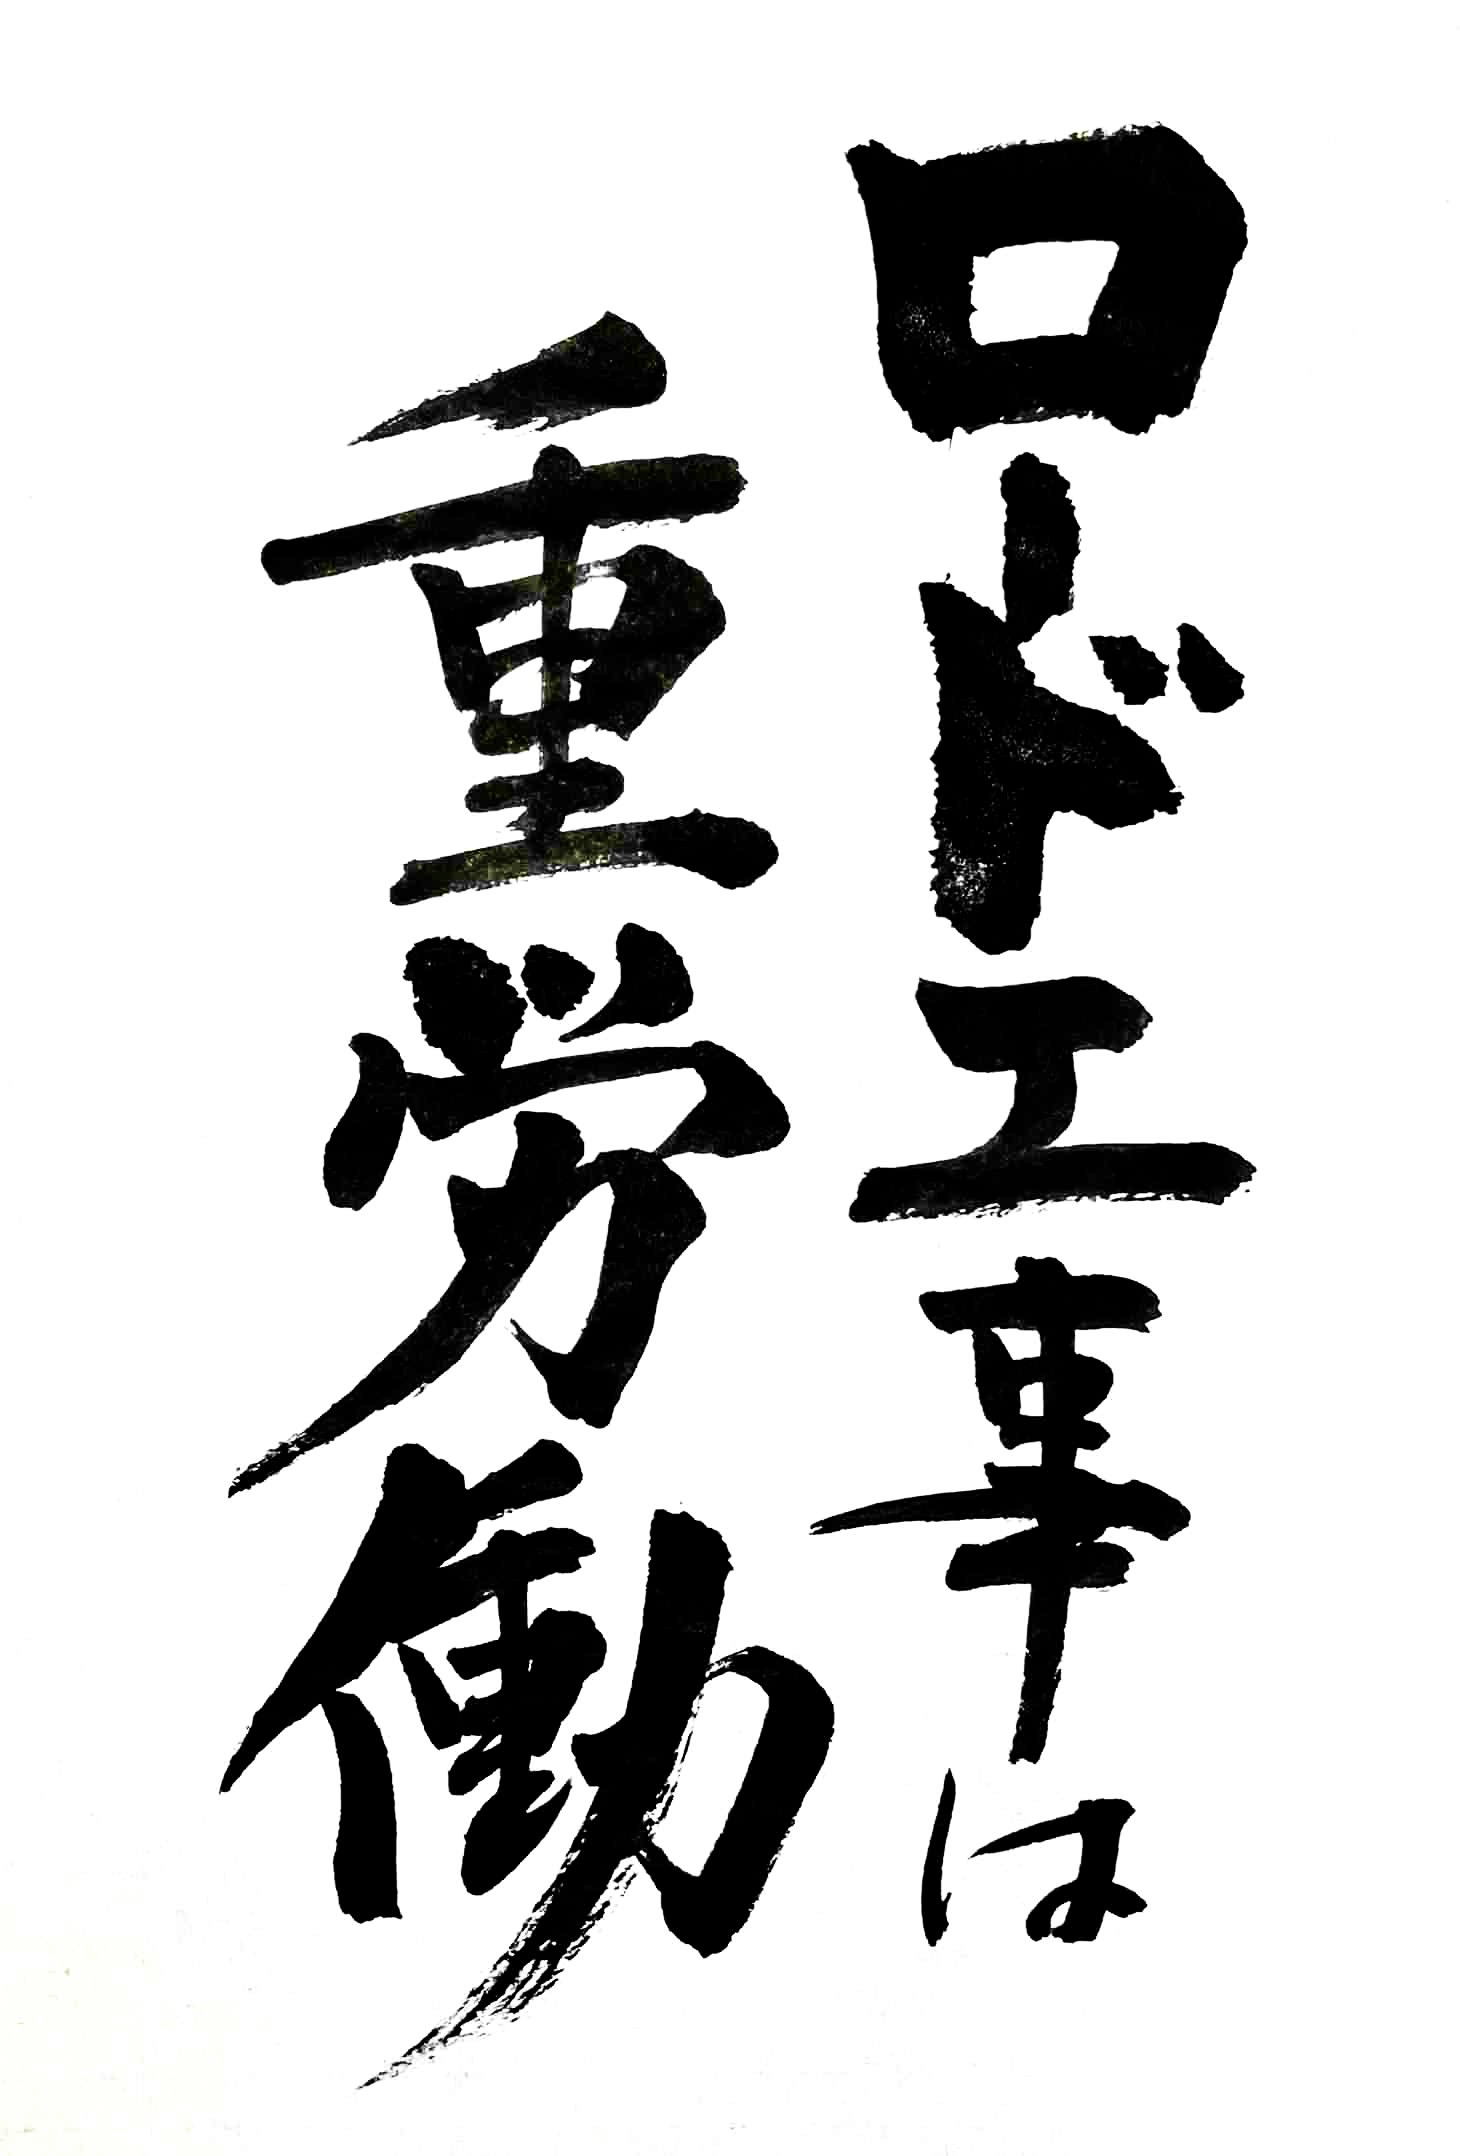 ロド工事は
重労働